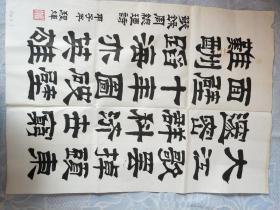 大江歌罷掉頭東
邃密群科濟世窮
面壁十年圖破壁
難酬蹈海亦英雄
周總理詩